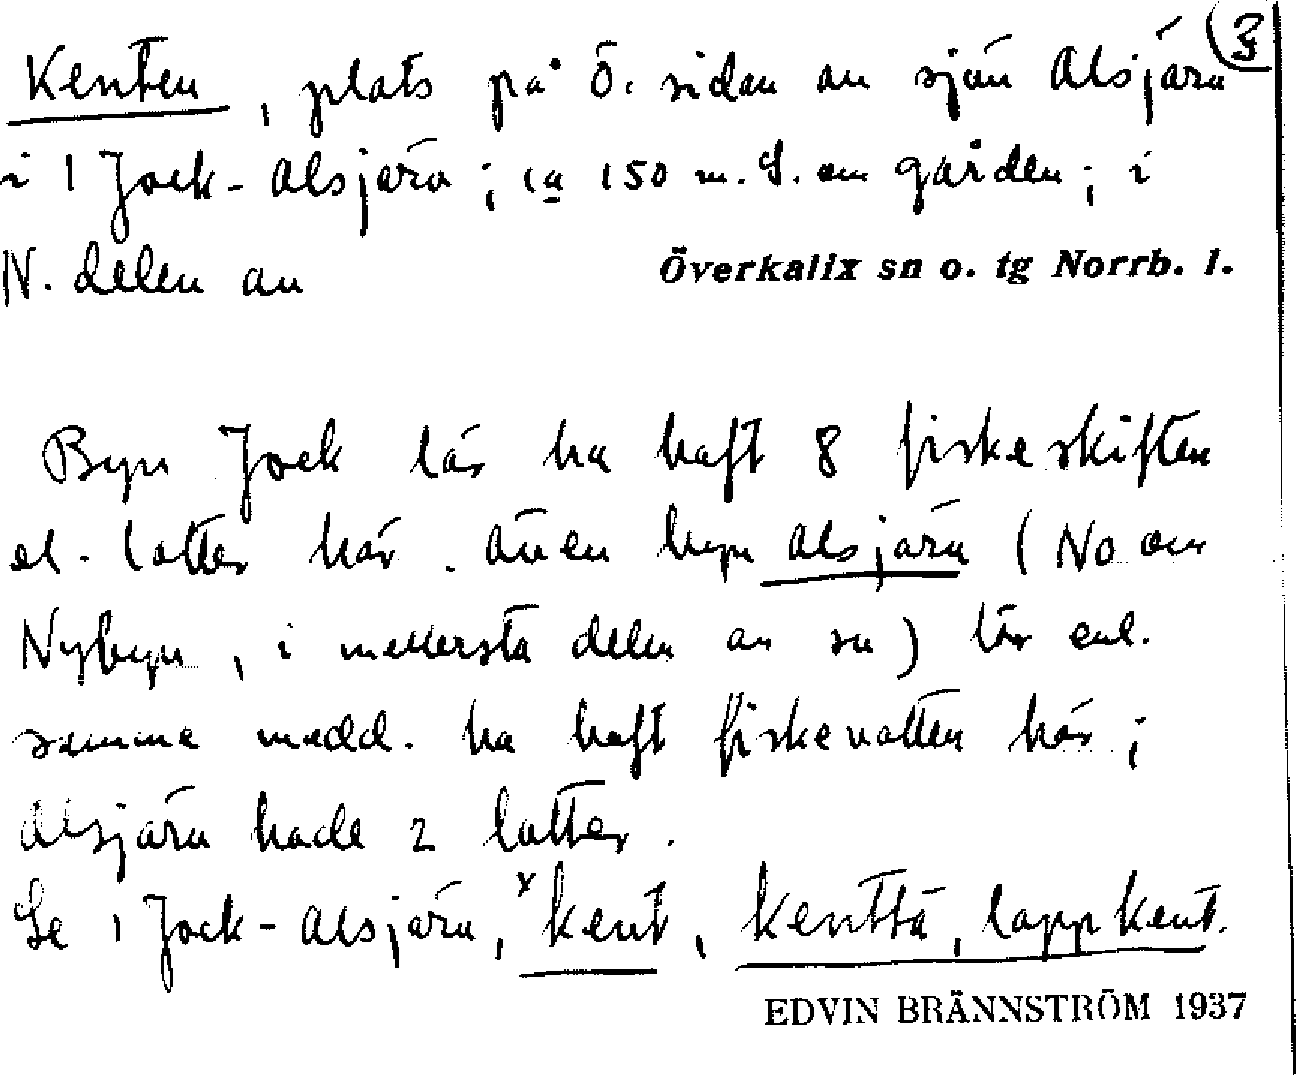 3
Kenten, plats på Ö. sidan av sjön Alsjärv
i 1 Jock-Alsjärv; ca 150 m. S. om gården; i
N. delen av
Överkalix sn o. tg Norrb. l.
Byn Jock lär ha haft 8 fiskeskiften
el. lotter här. Även byn Alsjärv (NO om
Nybyn, i mellersta delen av sn) lär enl.
samme medd. ha haft fiskevatten här;
Alsjärv hade 2 lotter.
Se 1 Jock-Alsjärv, ˣkent, kenttä, lappkent.
EDVIN BRÄNNSTRÖM 1937